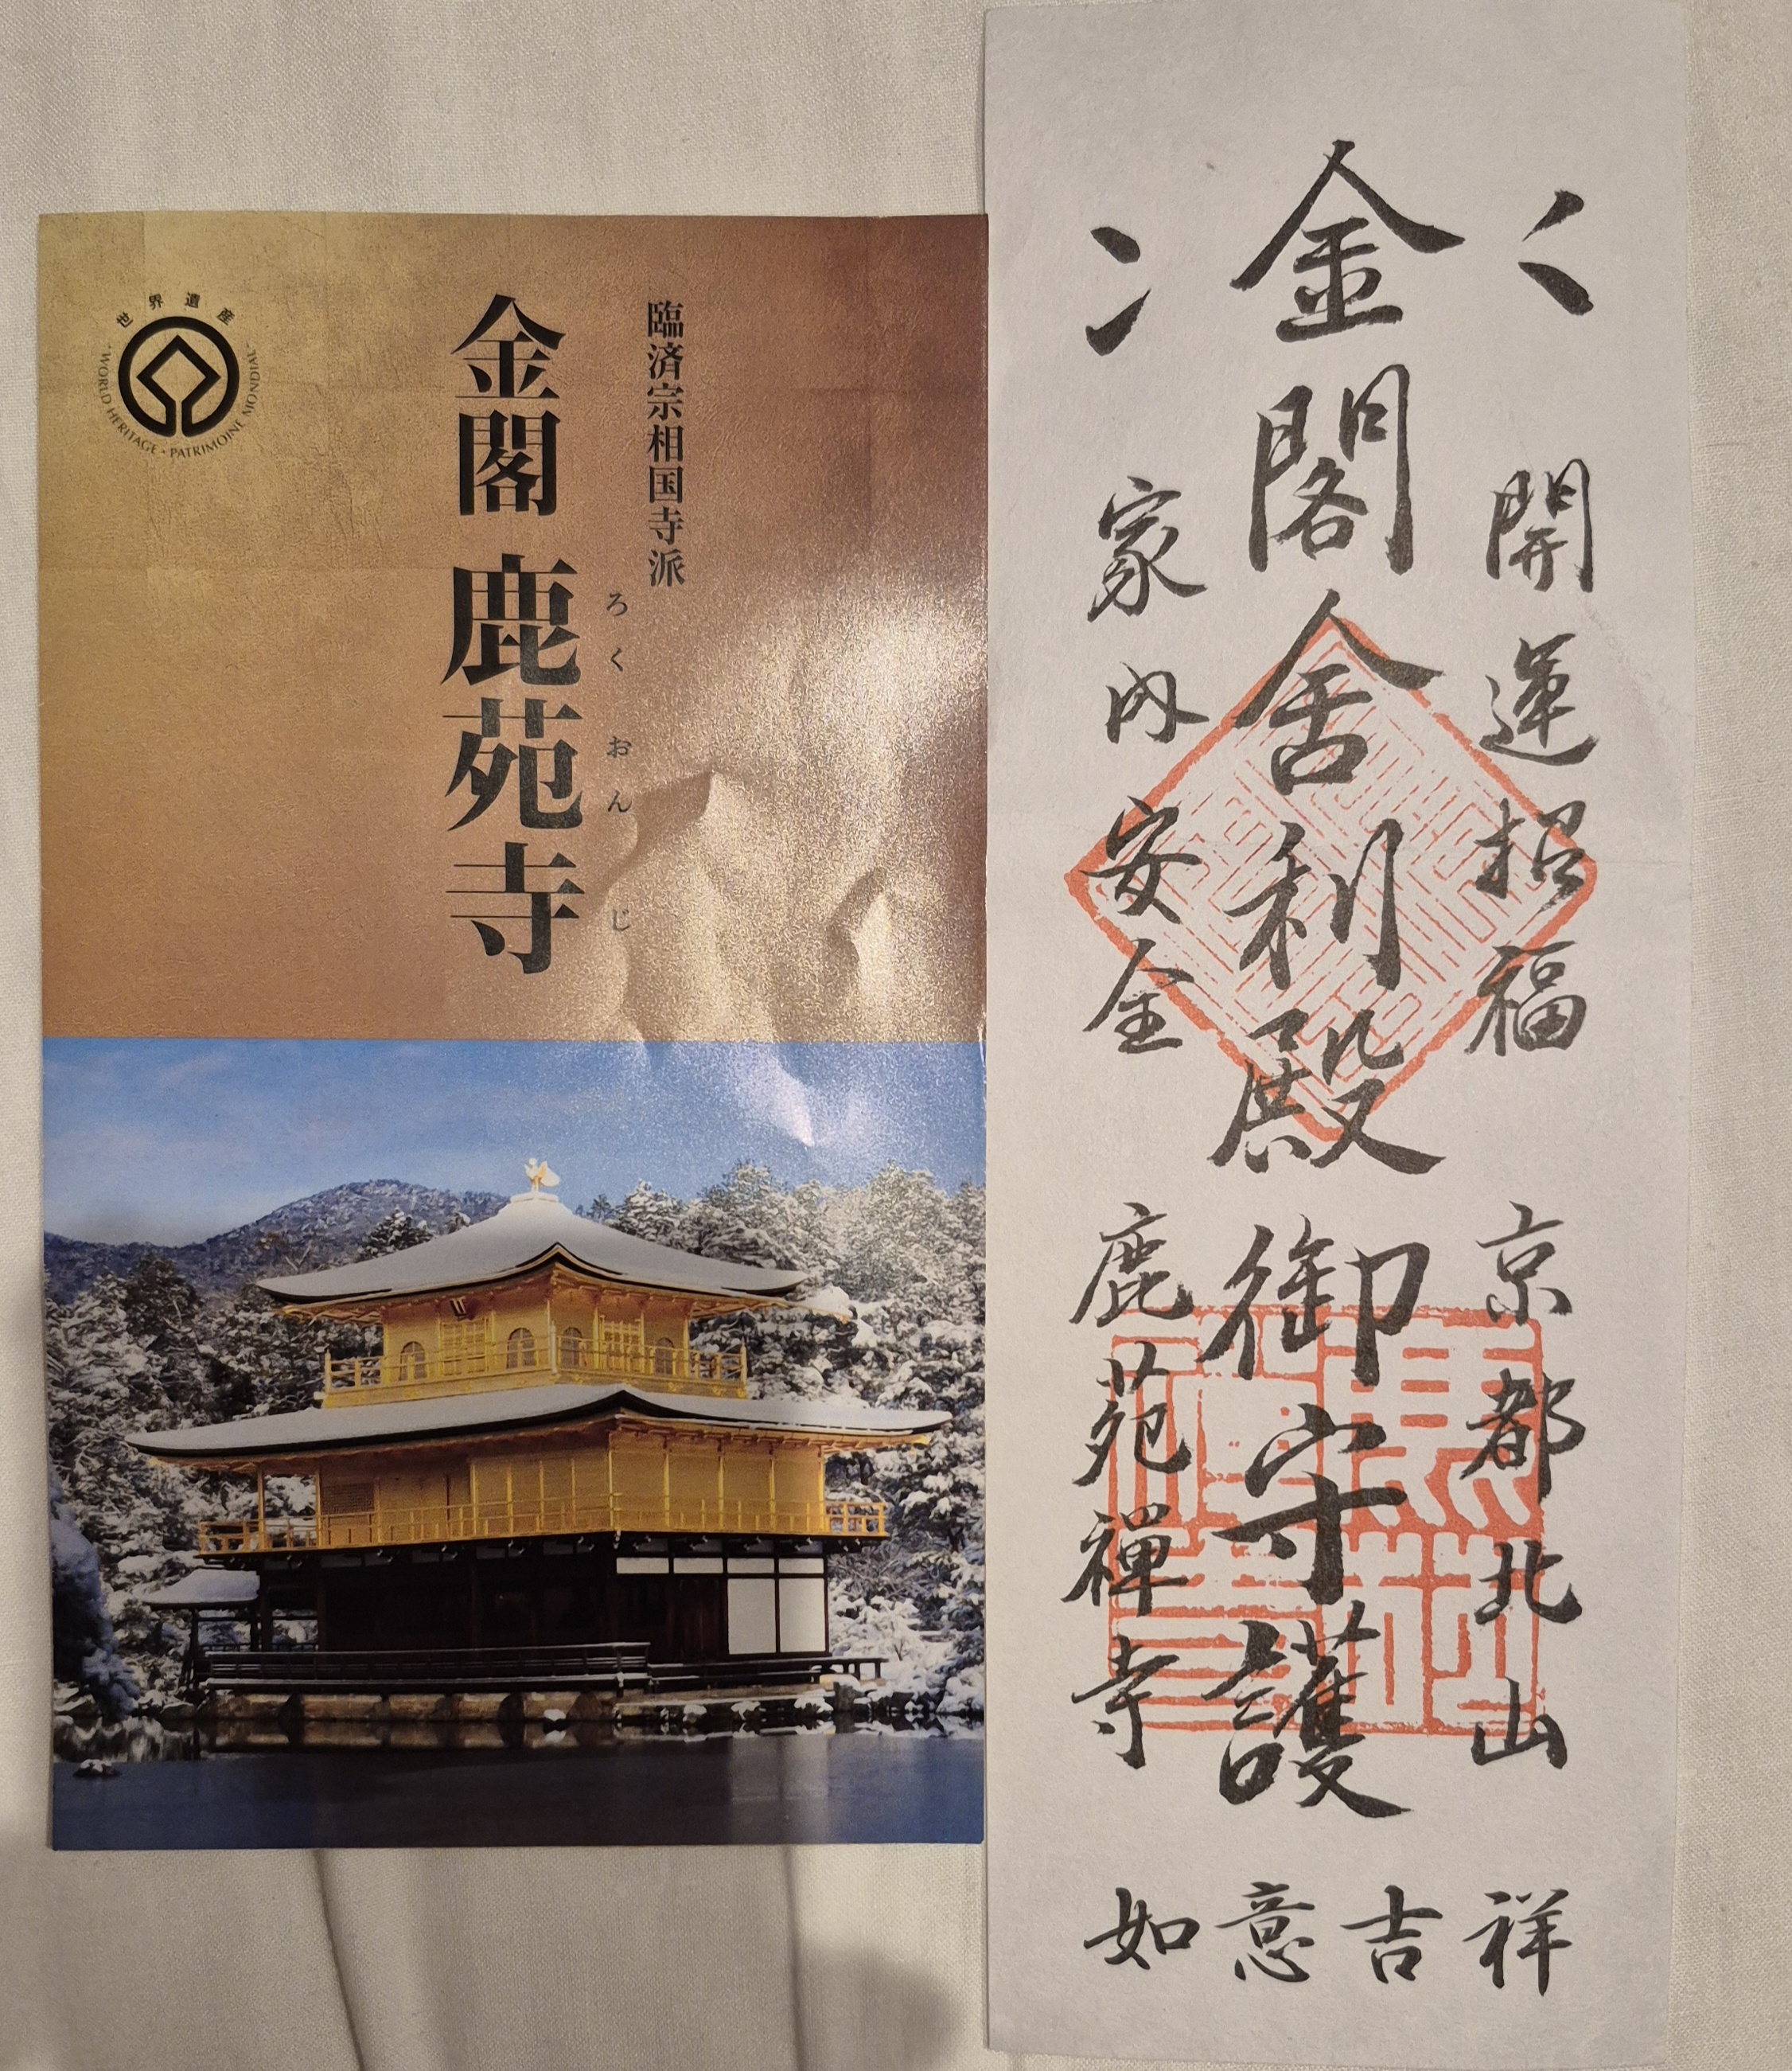 世界遺産
WORLD HERITAGE • PATRIMOINE MONDIAL
臨済宗相国寺派
金閣 鹿苑寺
ろくおんじ
開運招福
京都北山
金閣舎利殿
御守護
家内安全
鹿苑禅寺
如意吉祥